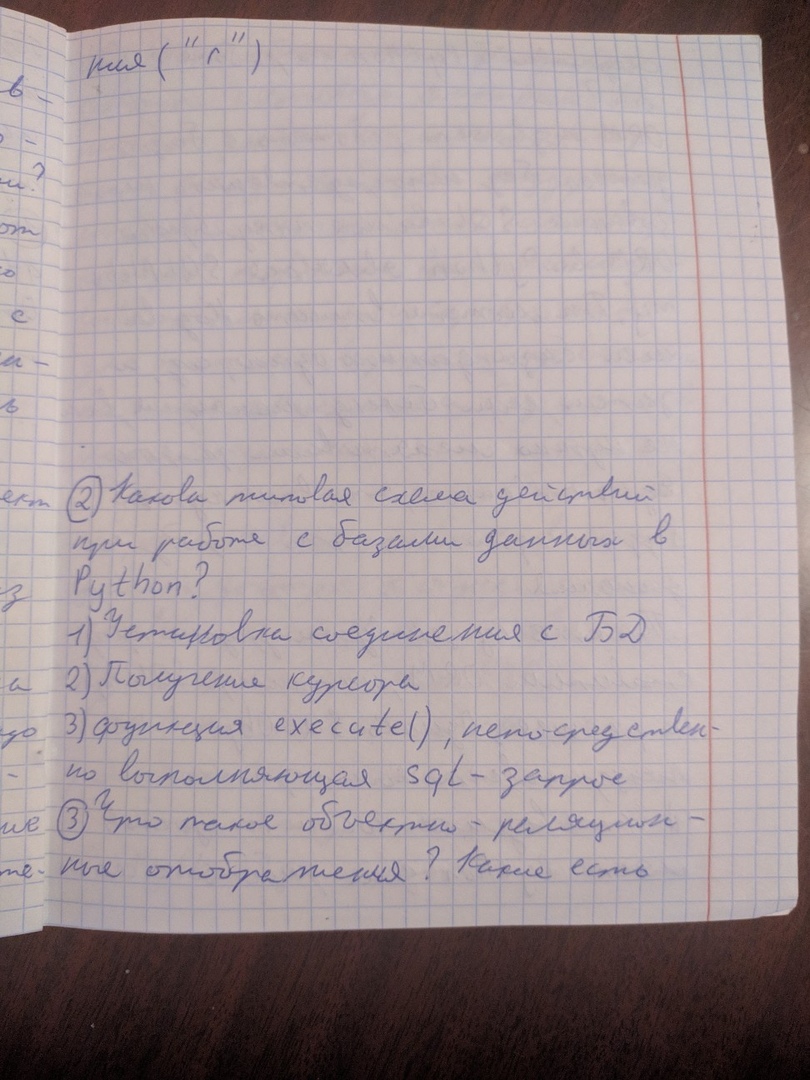 ния ("r")
② Какова типовая схема действий
при работе с базами данных в
Python?
1) Установка соединения с БД
2) Получение курсора
3) функция execute(), непосредствен-
но выполняющая sql-запрос
③ Что такое объектно-реляцион-
ные отображения? Какие есть